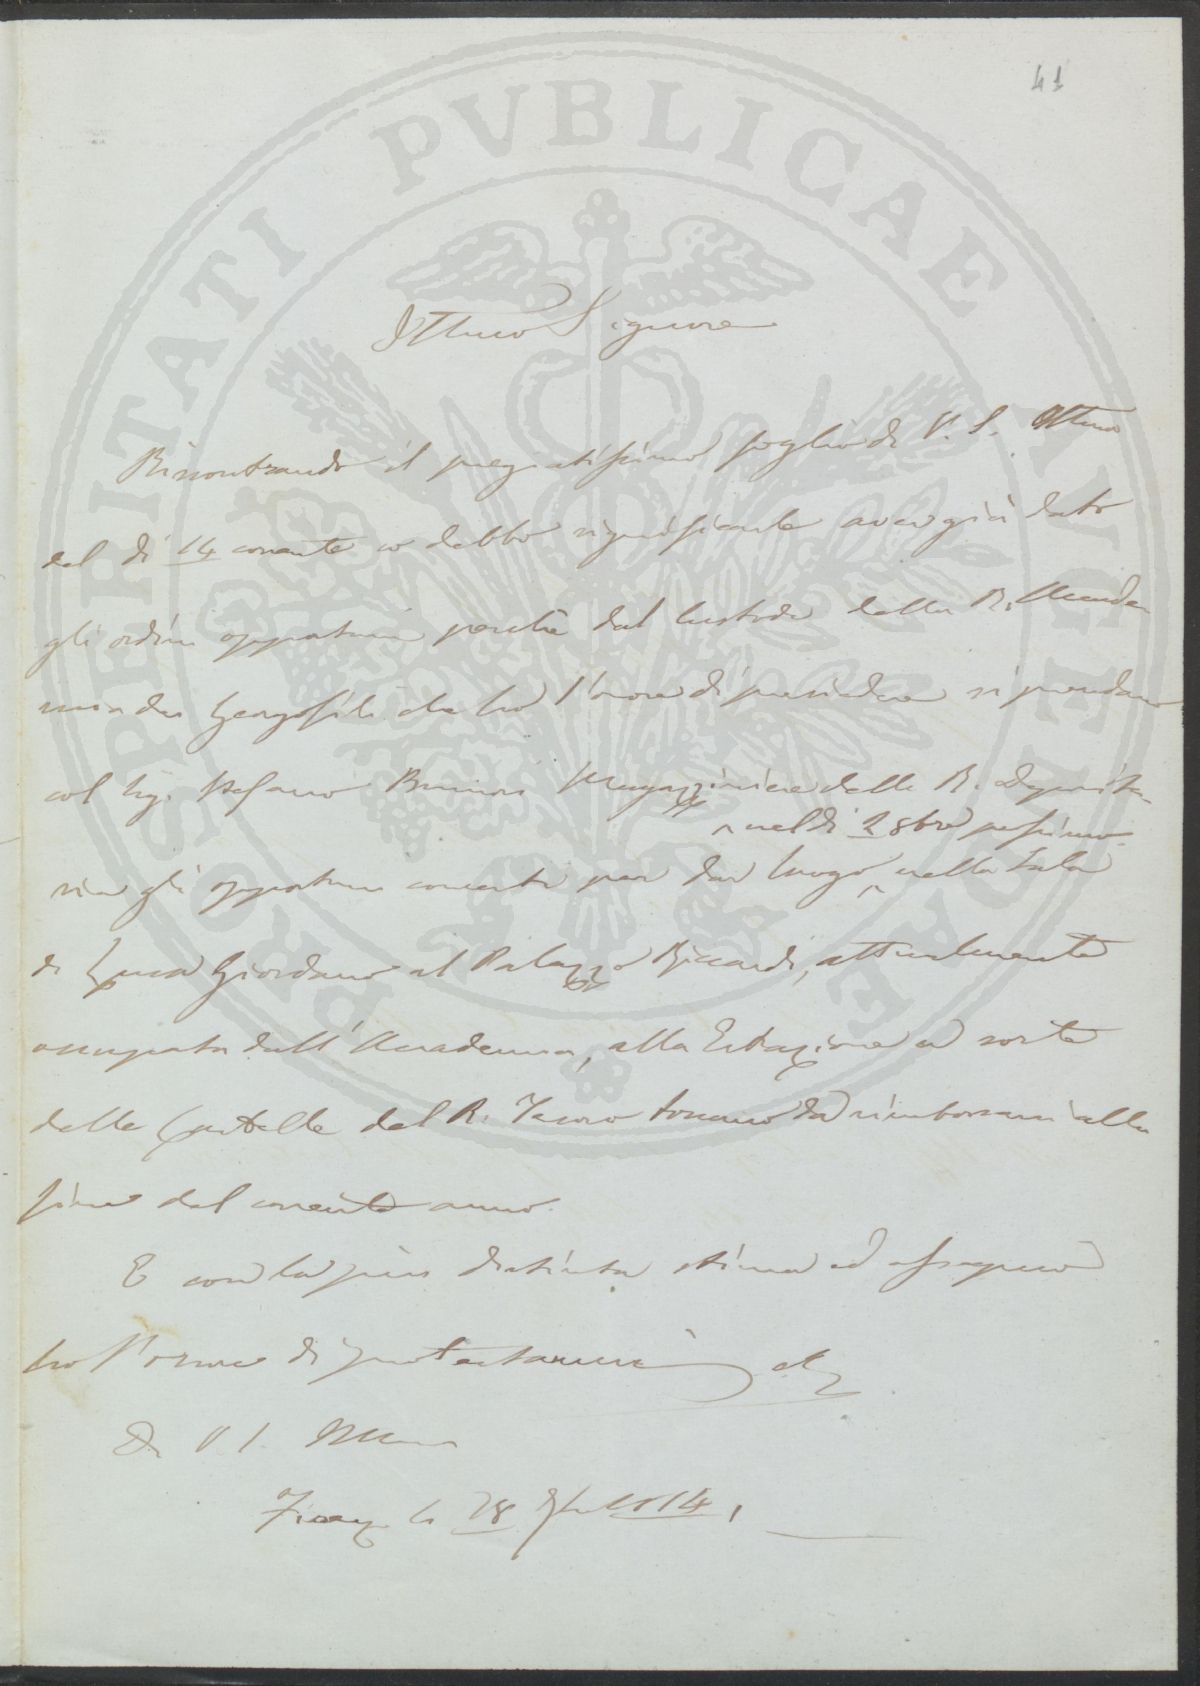 41
PROSPERITATI PVBLICAE AVGENDAE
Illmo Signore
Riscontrando il pregiatissimo foglio di V. S. Illma
del dì 14 corrente io debbo significarle aver già dato
gli ordini opportuni perchè dal Custode della R. Accade
mia dei Georgofili che ho l'onore di presiedere si prendano
col Sig. Stefano Magazziniere delle R. Deposite
nel dì 2 8bre prossimo
ria gli opportuni concerti per dar luogo ^ nella Sala
di Luca Giordano al Palazzo Riccardi, attualmente
occupata dall'Accademia, alla Estrazione a sorte
delle Cartelle del R. Tesoro toscano da rimborsarsi alla
fine del corrente anno.
E con la più distinta stima ed ossequio
ho l'onore di protestarmi
Di V. S. Illma
Firenze li 18